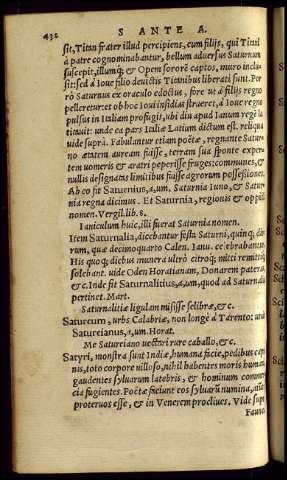 432 S ANTE A.
sit, Titan frater illud percipiens, cum filijs, qui Titani
à patre cognominabantur, bellum aduersus Saturnum
suscepit, illumq́; & Opem sororē captos, muro inclu
sit: sed à Ioue filio deuictis Titanibus liberati sunt. Por
rò Saturnus ex oraculo edoctus, fore ut à filijs regno
pelleretur: et ob hoc Ioui insidias strueret, à Ioue regno
pulsus in Italiam profugit, ubi diu apud Ianum regē la
tinuit: unde ea pars Italiæ Latium dictum est. reliqua
uide suprà. Fabulantur etiam poëtæ, regnante Satur
no ætatem auream fuisse, terram sua sponte exper
tem uomeris & aratri peperisse fruges: communes, &
nullis designatas limitibus fuisse agrorum possessiones.
Ab eo fit Saturnius, a, um. Saturnia Iuno, & Satur
nia regna dicimus. Et Saturnia, regionis & oppidi
nomen. Vergil. lib. 8.
Ianiculum huic, illi fuerat Saturnia nomen.
Item Saturnalia, dicebantur festa Saturni, quinq́; die
rum, quæ decimoquarto Calen. Ianu. celebrabantur.
His quoq; diebus munera ultrò citroq́; mitti remittiq́;
solebant. uide Oden Horatianam, Donarem pateras,
&c. Inde fit Saturnalitius, a, um, quod ad Saturnalia
pertinet. Mart.
Saturnalitiæ ligulam misisse selibræ, &c.
Satureum, urbs Calabriæ, non longè à Tarento: unde
Satureianus, a, um. Horat.
Me Satureiano uectari rure caballo, &c.
Satyri, monstra sunt Indiæ, humana facie, pedibus capri
nis, toto corpore uilloso, nihil habentes moris humani,
gaudentes syluarum latebris, & hominum commer
cia fugientes. Poëtæ faciunt eos syluarū numina, aiūt
proteruos esse, & in Venerem procliues. Vide suprà
Faunus